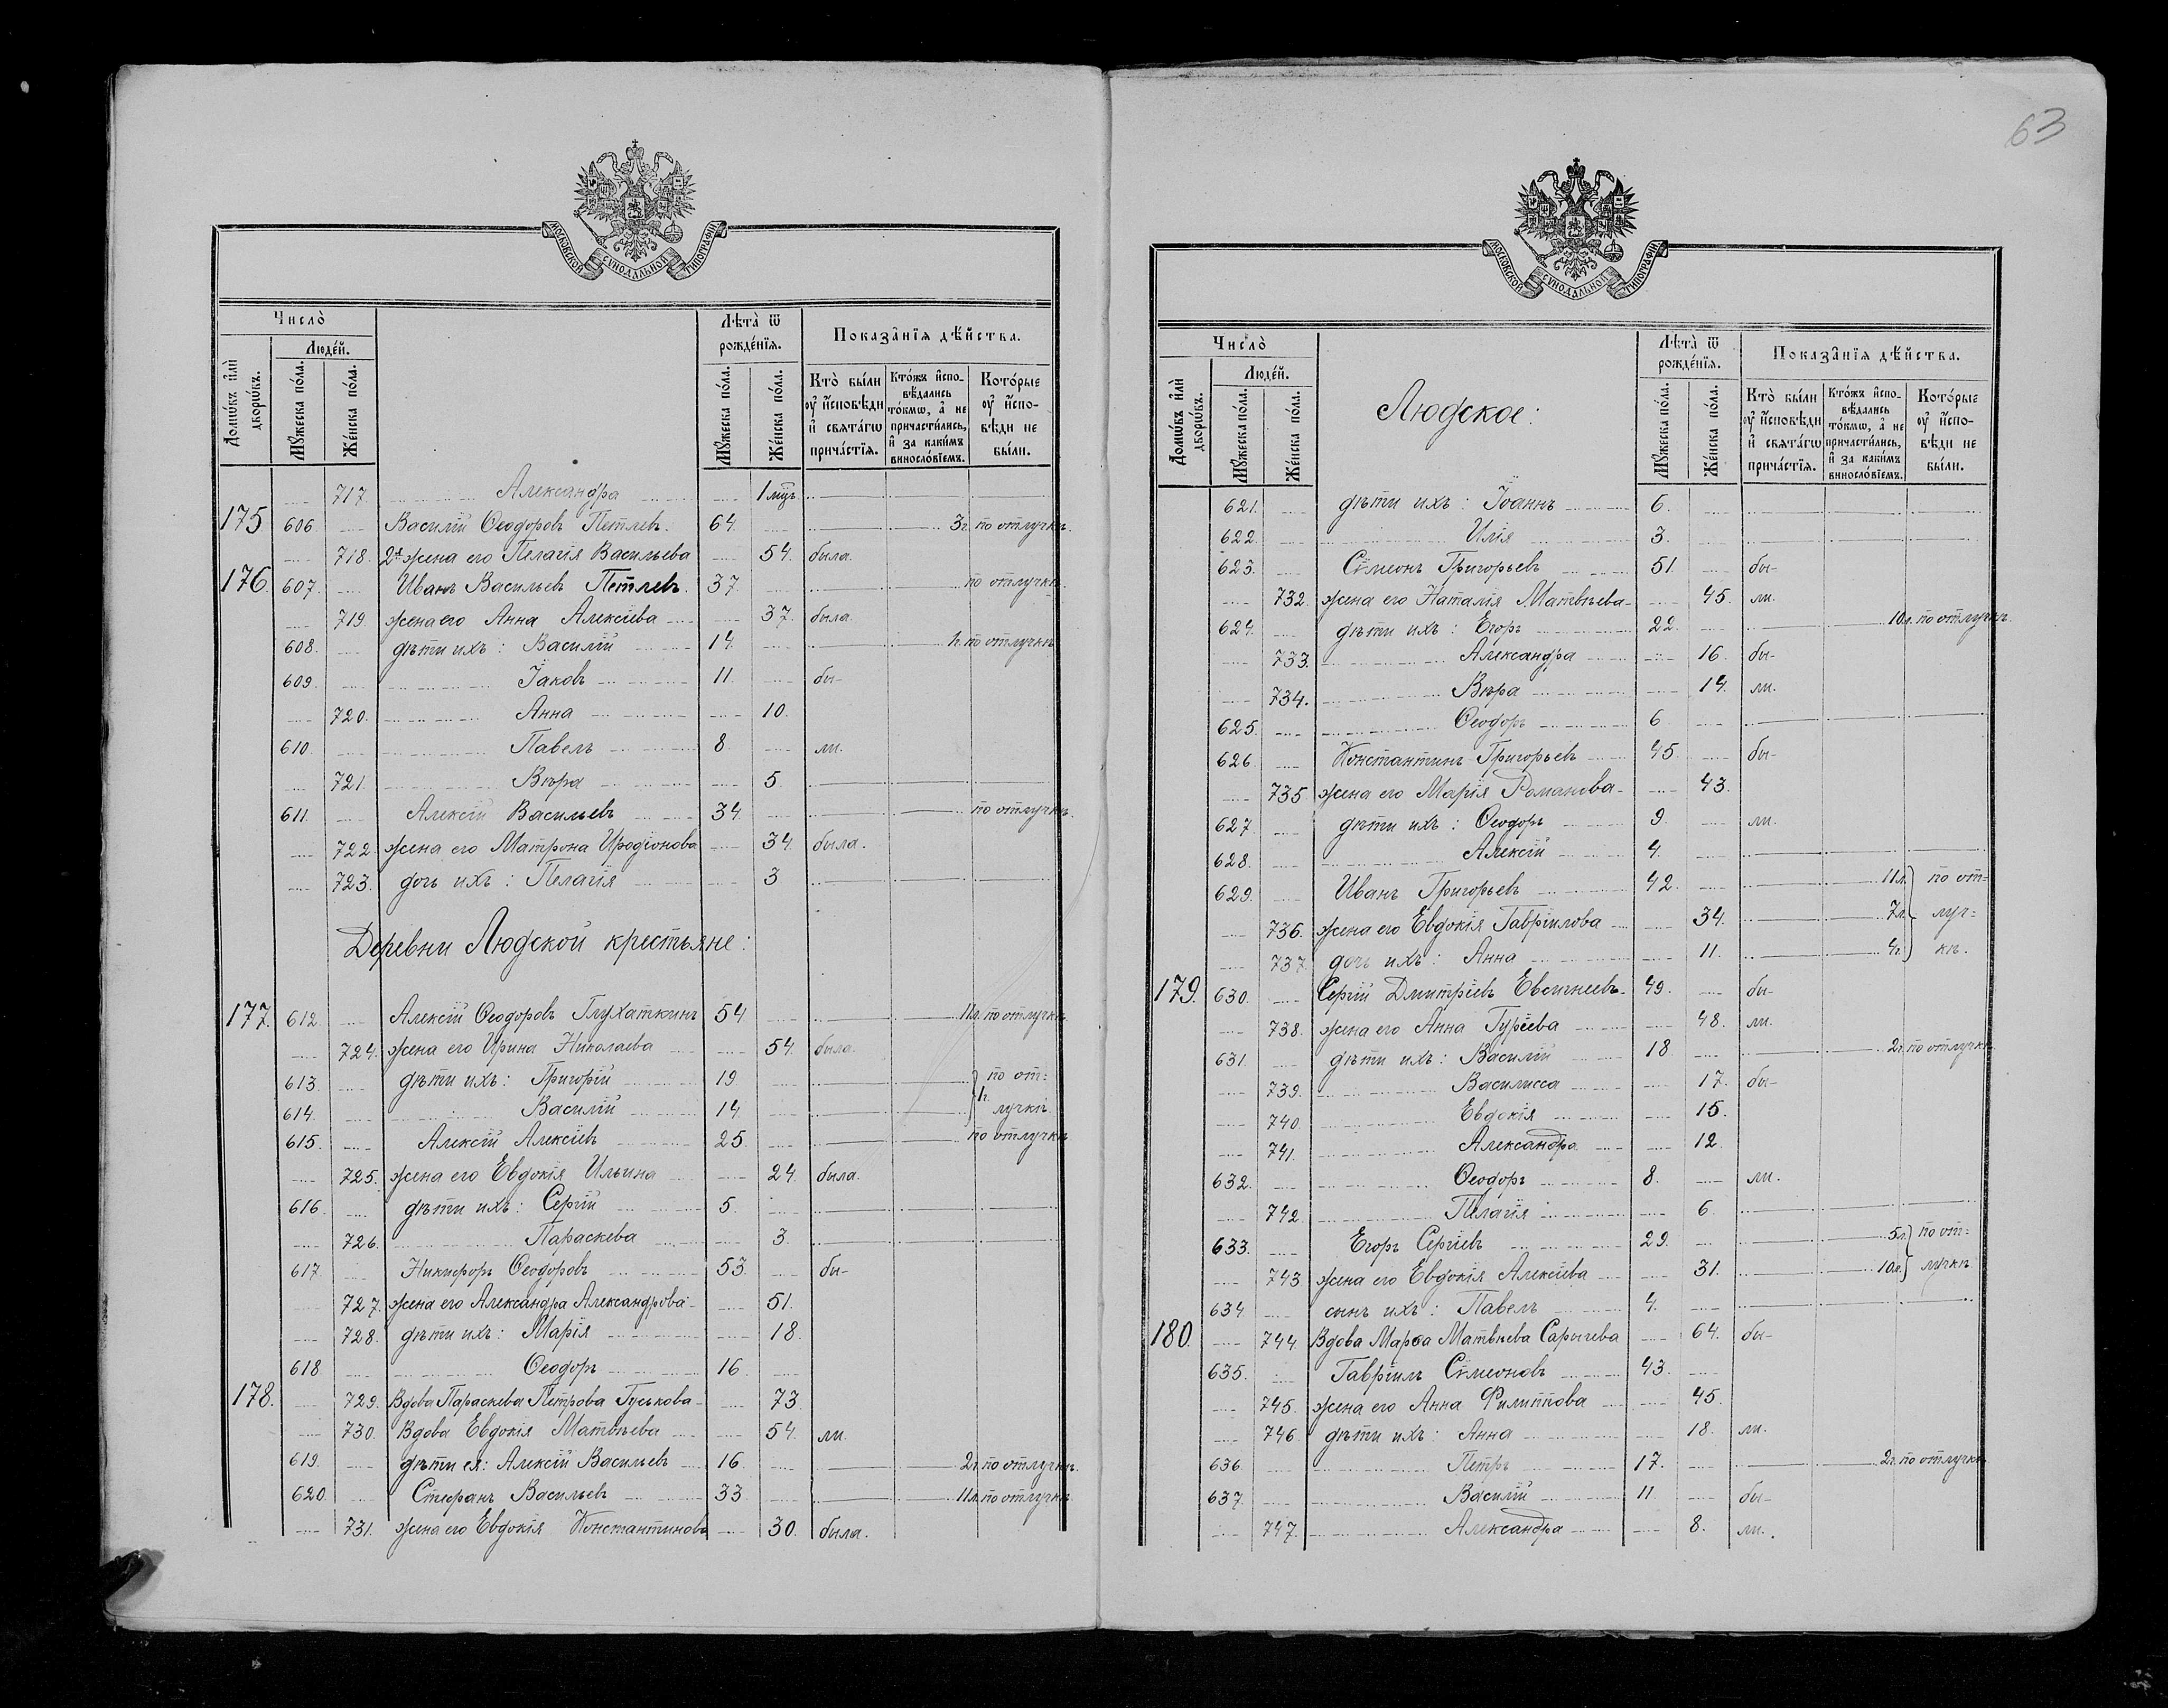 63
МОСКОВСКОЙ СѴНОДАЛЬНОЙ ТИПОГРАФІИ
Число̀
Людéй.
Домѡ́въ и҆лѝ дворѡ́въ.
Мꙋ́жеска по́ла.
Же́нска по́ла.
Лѣта̀ ѿ рожде́нїѧ.
Мꙋ́жеска по́ла.
Же́нска по́ла.
Показа̑нїѧ дѣ́йства.
Кто̀ бы́ли оу҆ и҆сповѣ́ди и҆ свѧта́гѡ прича́стїѧ.
Кто́жъ и҆сповѣ́дались то́кмѡ, а҆ не причасти́лись, и҆ за каки́мъ виносло́вїемъ.
Кото́рые оу҆ и҆сповѣ́ди не бы́ли.
717. Александра 1 мцъ
175 606 Василій Ѳеодоровъ Петлевъ. 64. 3г. по отлучкѣ.
718. 2я жена его Пелагія Васильева 54. была.
176. 607. Иванъ Васильевъ Петлевъ. 37. по отлучкѣ.
719. жена его Анна Алексіева 37. была.
608. дѣти ихъ: Василій 14. 1г. по отлучкѣ
609. Іаковъ 11. бы-
720. Анна 10.
610. Павелъ 8 ли.
721. Вѣра 5
611. Алексій Васильевъ 34. по отлучкѣ.
722. жена его Матрона Иродіонова 34. была.
723. дочь ихъ: Пелагія 3
Деревни Людской крестьяне:
177. 612. Алексій Ѳеодоровъ Глухаткинъ 54 11л. по отлучкѣ.
724. жена его Ирина Николаева 54. была.
613. дѣти ихъ: Григорій 19 по от=
614. Василій 14. 1г. лучкѣ.
615. Алексій Алексіевъ 25. по отлучкѣ
725. жена его Евдокія Ильина 24. была.
616. дѣти ихъ: Сергій 5.
726. Параскева 3.
617. Никифоръ Ѳеодоровъ 53. бы-
727. жена его Александра Александрова 51.
728. дѣти ихъ: Марія 18.
618 Ѳеодоръ 16.
178. 729. Вдова Параскева Петрова Гуськова 73.
730. Вдова Евдокія Матвѣева 54. ли.
619. дѣти ея: Алексій Васильевъ 16. 2г. по отлучкѣ.
620. Стефанъ Васильевъ 33 11л. по отлучкѣ
731. жена его Евдокія Константинова 30. была.
МОСКОВСКОЙ СѴНОДАЛЬНОЙ ТИПОГРАФІИ
Число̀
Людéй.
Домѡ́въ и҆лѝ дворѡ́въ.
Мꙋ́жеска по́ла.
Же́нска по́ла.
Людское:
Лѣта̀ ѿ рожде́нїѧ.
Мꙋ́жеска по́ла.
Же́нска по́ла.
Показа̑нїѧ дѣ́йства.
Кто̀ бы́ли оу҆ и҆сповѣ́ди и҆ свѧта́гѡ прича́стїѧ.
Кто́жъ и҆сповѣ́дались то́кмѡ, а҆ не причасти́лись, и҆ за каки́мъ виносло́вїемъ.
Кото́рые оу҆ и҆сповѣ́ди не бы́ли.
621. дѣти ихъ: Іоаннъ 6.
622. Илія 3.
623. Сѵмеонъ Григорьевъ 51. бы-
732. жена его Наталія Матвѣева 45. ли.
624. дѣти ихъ: Егоръ 22. 10л. по отлучкѣ.
733. Александра 16. бы-
734. Вѣра 14. ли.
625. Ѳеодоръ 6
626 Константинъ Григорьевъ 45 бы-
735 жена его Марія Романова 43.
627. дѣти ихъ: Ѳеодоръ 9. ли.
628. Алексій 4.
629. Иванъ Григорьевъ 42. 11л. по от=
736. жена его Евдокія Гавріилова 34. 7л. луч=
737. дочь ихъ: Анна 11. 4г. кѣ.
179. 630. Сергій Дмитріевъ Евсигнеевъ 49. бы-
738. жена его Анна Гуріева 48. ли.
631. дѣти ихъ: Василій 18 2г. по отлучкѣ.
739. Василисса 17. бы-
740. Евдокія 15.
741. Александра 12.
632. Ѳеодоръ 8. ли.
742. Пелагія 6.
633. Егоръ Сергіевъ 29. 5л. по от=
743 жена его Евдокія Алексіева 31. 10л. лучкѣ
634. сынъ ихъ: Павелъ 4.
180. 744. Вдова Марѳа Матвѣева Сарычева 64. бы-
635. Гавріилъ Сѵмеоновъ 43.
745. жена его Анна Филиппова 45.
746. дѣти ихъ: Анна 18. ли.
636. Петръ 17. 2г. по отлучкѣ
637. Василій 11 бы-
747. Александра 8. ли.